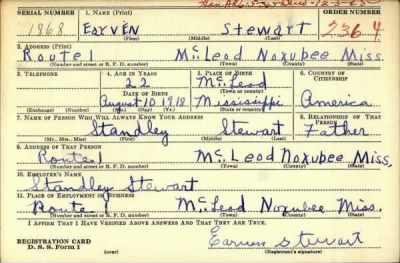 SERIAL NUMBER 1. NAME (Print) ORDER NUMBER
1868 Earven Stewart 2364
(First) (Middle) (Last)
2. ADDRESS (Print)
Route 1 McLeod Noxubee Miss.
(Number and street or R. F. D. number) (Town) (County) (State)
3. TELEPHONE 4. AGE IN YEARS 5. PLACE OF BIRTH 6. COUNTRY OF CITIZENSHIP
22 McLeod
DATE OF BIRTH (Town or county)
August 10 1918 Mississippi America
(Exchange) (Number) (Mo.) (Day) (Yr.) (State or country)
7. NAME OF PERSON WHO WILL ALWAYS KNOW YOUR ADDRESS 8. RELATIONSHIP OF THAT PERSON
Standley Stewart Father
(Mr., Mrs., Miss) (First) (Middle) (Last)
9. ADDRESS OF THAT PERSON
Route 1 McLeod Noxubee Miss.
(Number and street or R. F. D. number) (Town) (County) (State)
10. EMPLOYER'S NAME
Standley Stewart
11. PLACE OF EMPLOYMENT OR BUSINESS
Route 1 McLeod Noxubee Miss.
(Number and street or R. F. D. number) (Town) (County) (State)
I AFFIRM THAT I HAVE VERIFIED ABOVE ANSWERS AND THAT THEY ARE TRUE.
REGISTRATION CARD
D. S. S. Form 1 (over) stewart
(Registrant's signature)